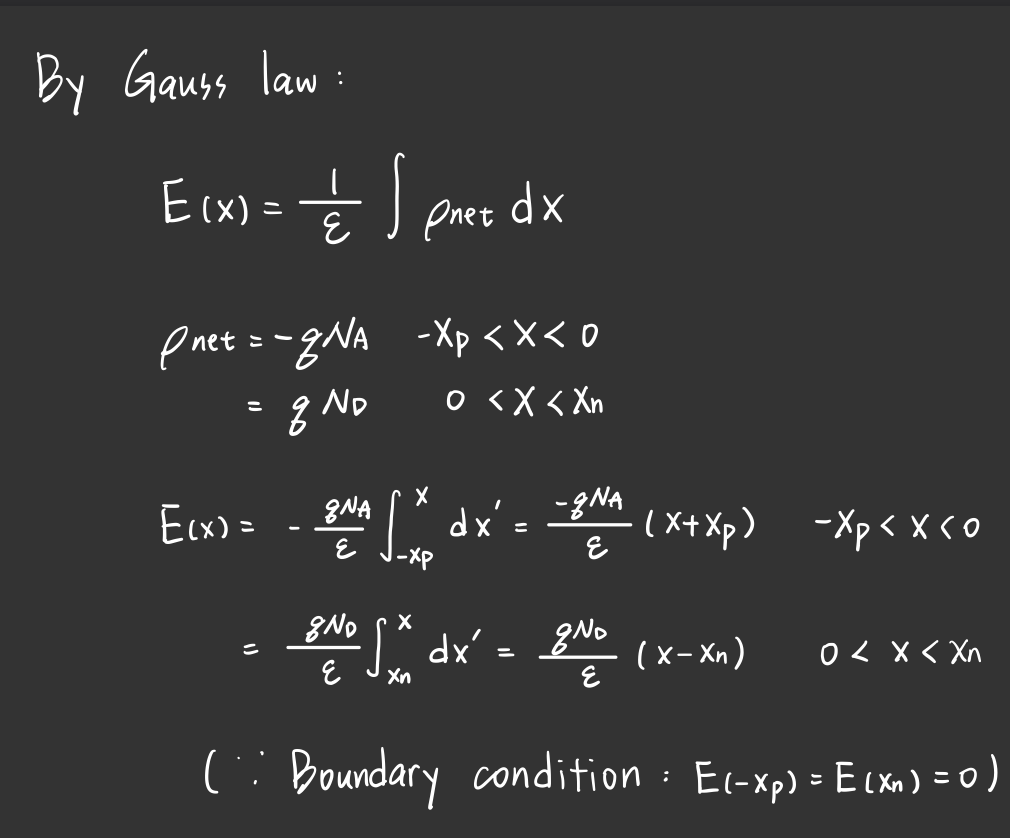 By Gauss law :
E(x) = 1/ε ∫ ρnet dx
ρnet = -qNA   -xp < x < 0
= qND   0 < x < xn
E(x) = - qNA/ε ∫_{-xp}^{x} dx' = -qNA/ε (x+xp)   -xp < x < 0
= qND/ε ∫_{xn}^{x} dx' = qND/ε (x-xn)   0 < x < xn
(∵ Boundary condition : E(-xp) = E(xn) = 0)